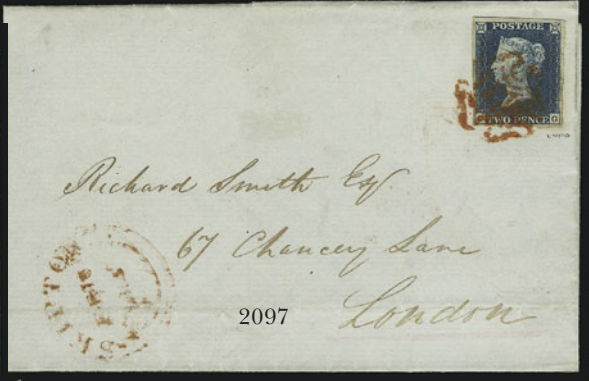 POSTAGE
TWO PENCE G
Richard Smith Esq.
67 Chancery Lane
London
SKIPTON
2097